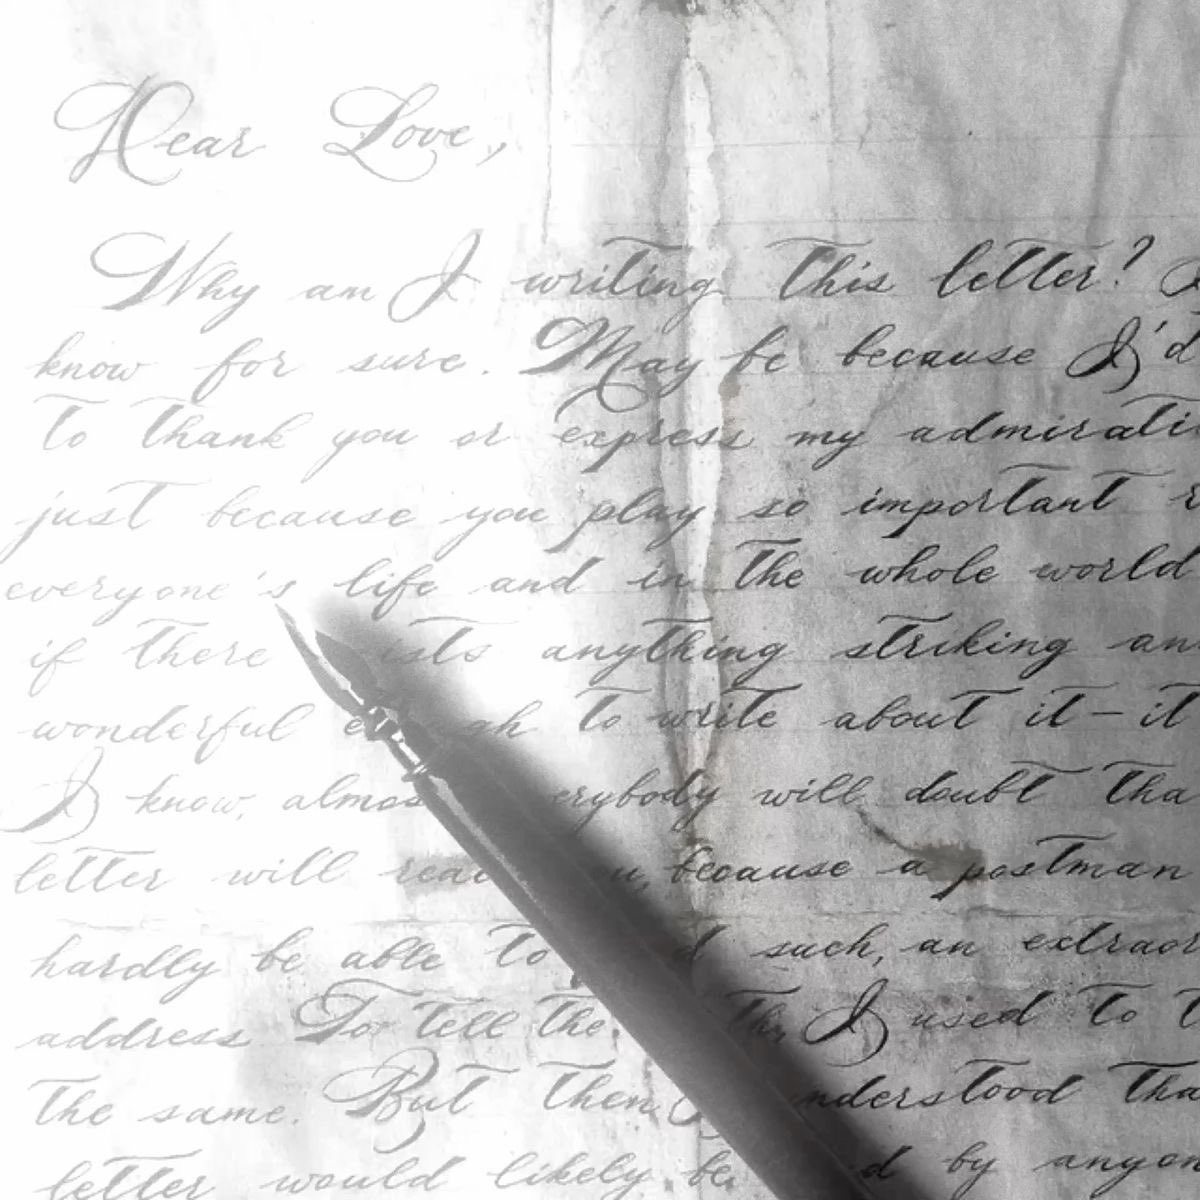 Dear Love,
Why am I writing this letter?
know for sure. May be because I'd
to thank you or express my admirati
just because you play so important r
everyone's life and in the whole world
if there ists anything striking an
wonderful e gh to write about it – it
I know, almos erybody will doubt tha
letter will reac ou, because a postman
hardly be able to d such, an extraor
address. To tell the th, I used to t
the same. But then I nderstood tha
letter would likely be d by anyon